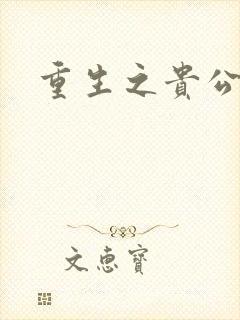 重生之貴公
文惠寶